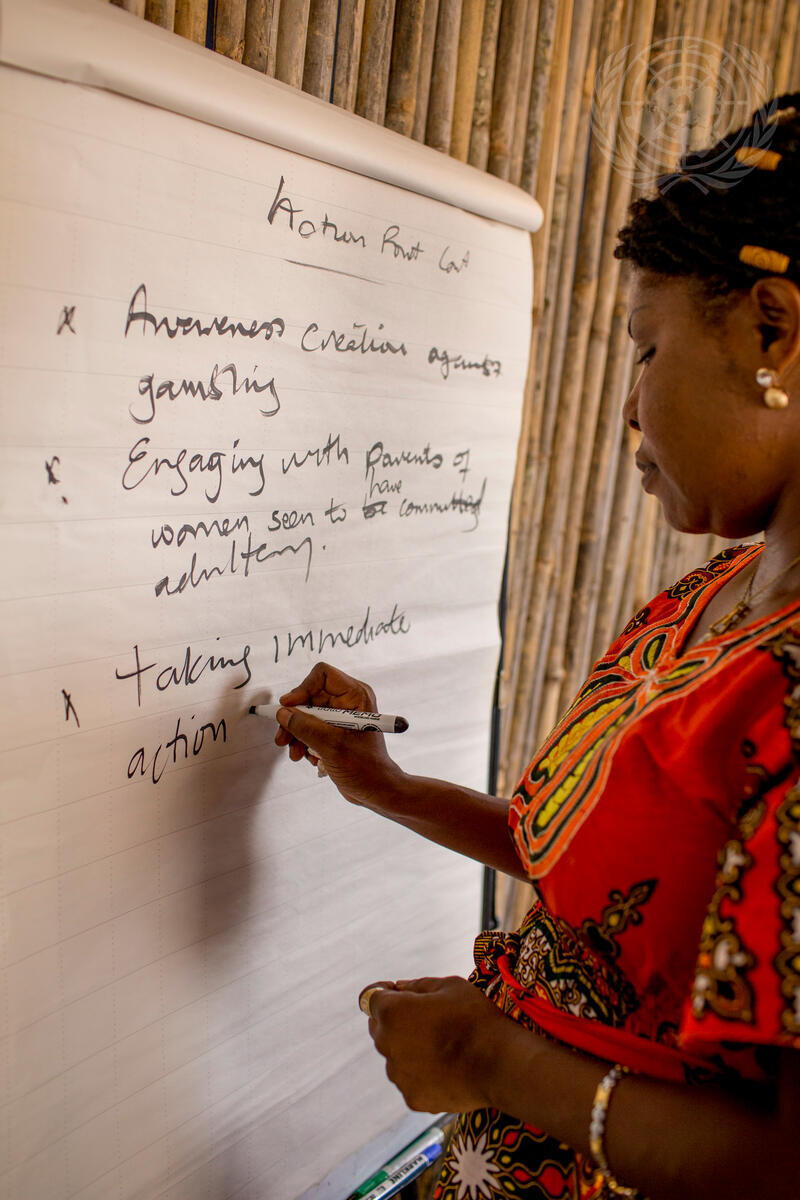 Action Point Cont
x Awareness Creation against
gambling
x Engaging with parents of
have
women seen to be committed
adultery.
x taking immediate
action
MEMO
MARKLINE